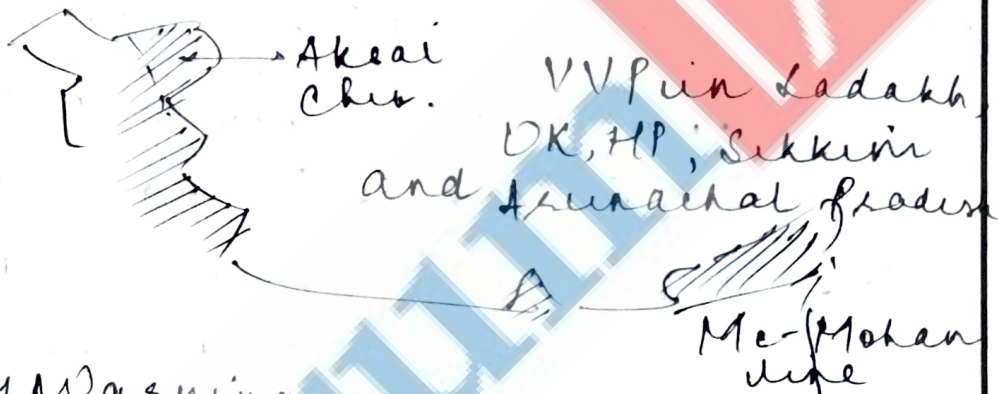 Aksai
Chin.
VVP in Ladakh,
UK, HP, Sikkim
and Arunachal Pradesh
Mc-Mohan
line